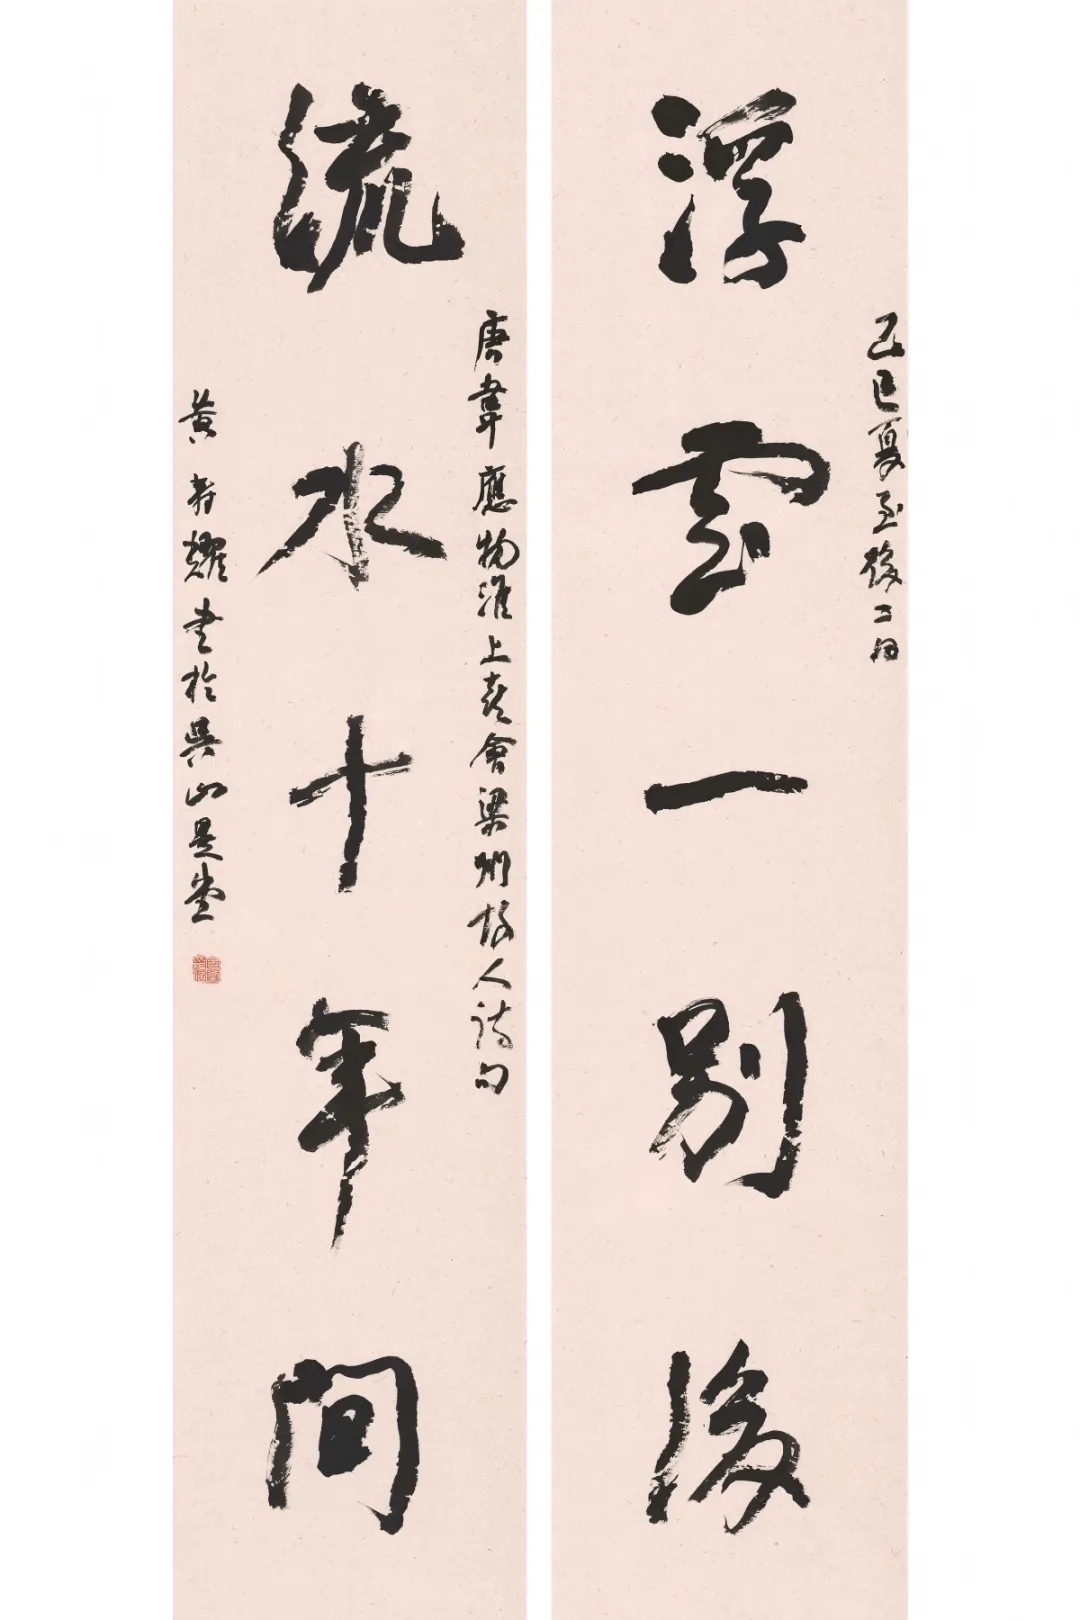 浮雲一別後
乙巳夏至後二日
流水十年間
唐韋應物淮上喜會梁州故人詩句
黃 耀書於吳山是堂